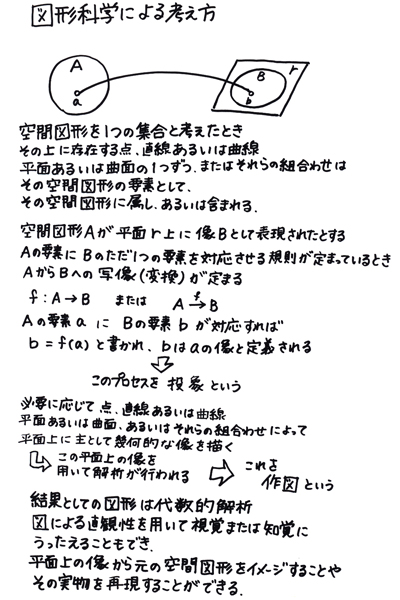 図形科学による考え方
A
a
B
b
r
空間図形を1つの集合と考えたとき
その上に存在する点、直線あるいは曲線
平面あるいは曲面の1つずつ、またはそれらの組合わせは
その空間図形の要素として、
その空間図形に属し、あるいは含まれる.
空間図形Aが平面r上に像Bとして表現されたとする
Aの要素にBのただ1つの要素を対応させる規則が定まっているとき
AからBへの写像(変換)が定まる
f:A→B または A f→ B
Aの要素aに Bの要素bが対応すれば
b=f(a)と書かれ、bはaの像と定義される
このプロセスを投象という
必要に応じて点、直線あるいは曲線
平面あるいは曲面、あるいはそれらの組合わせによって
平面上に主として幾何的な像を描く
この平面上の像を
用いて解析が行われる
これを
作図という
結果としての図形は代数的解析
図による直観性を用いて視覚または知覚に
うったえることもでき.
平面上の像から元の空間図形をイメージすることや
その実物を再現することができる.